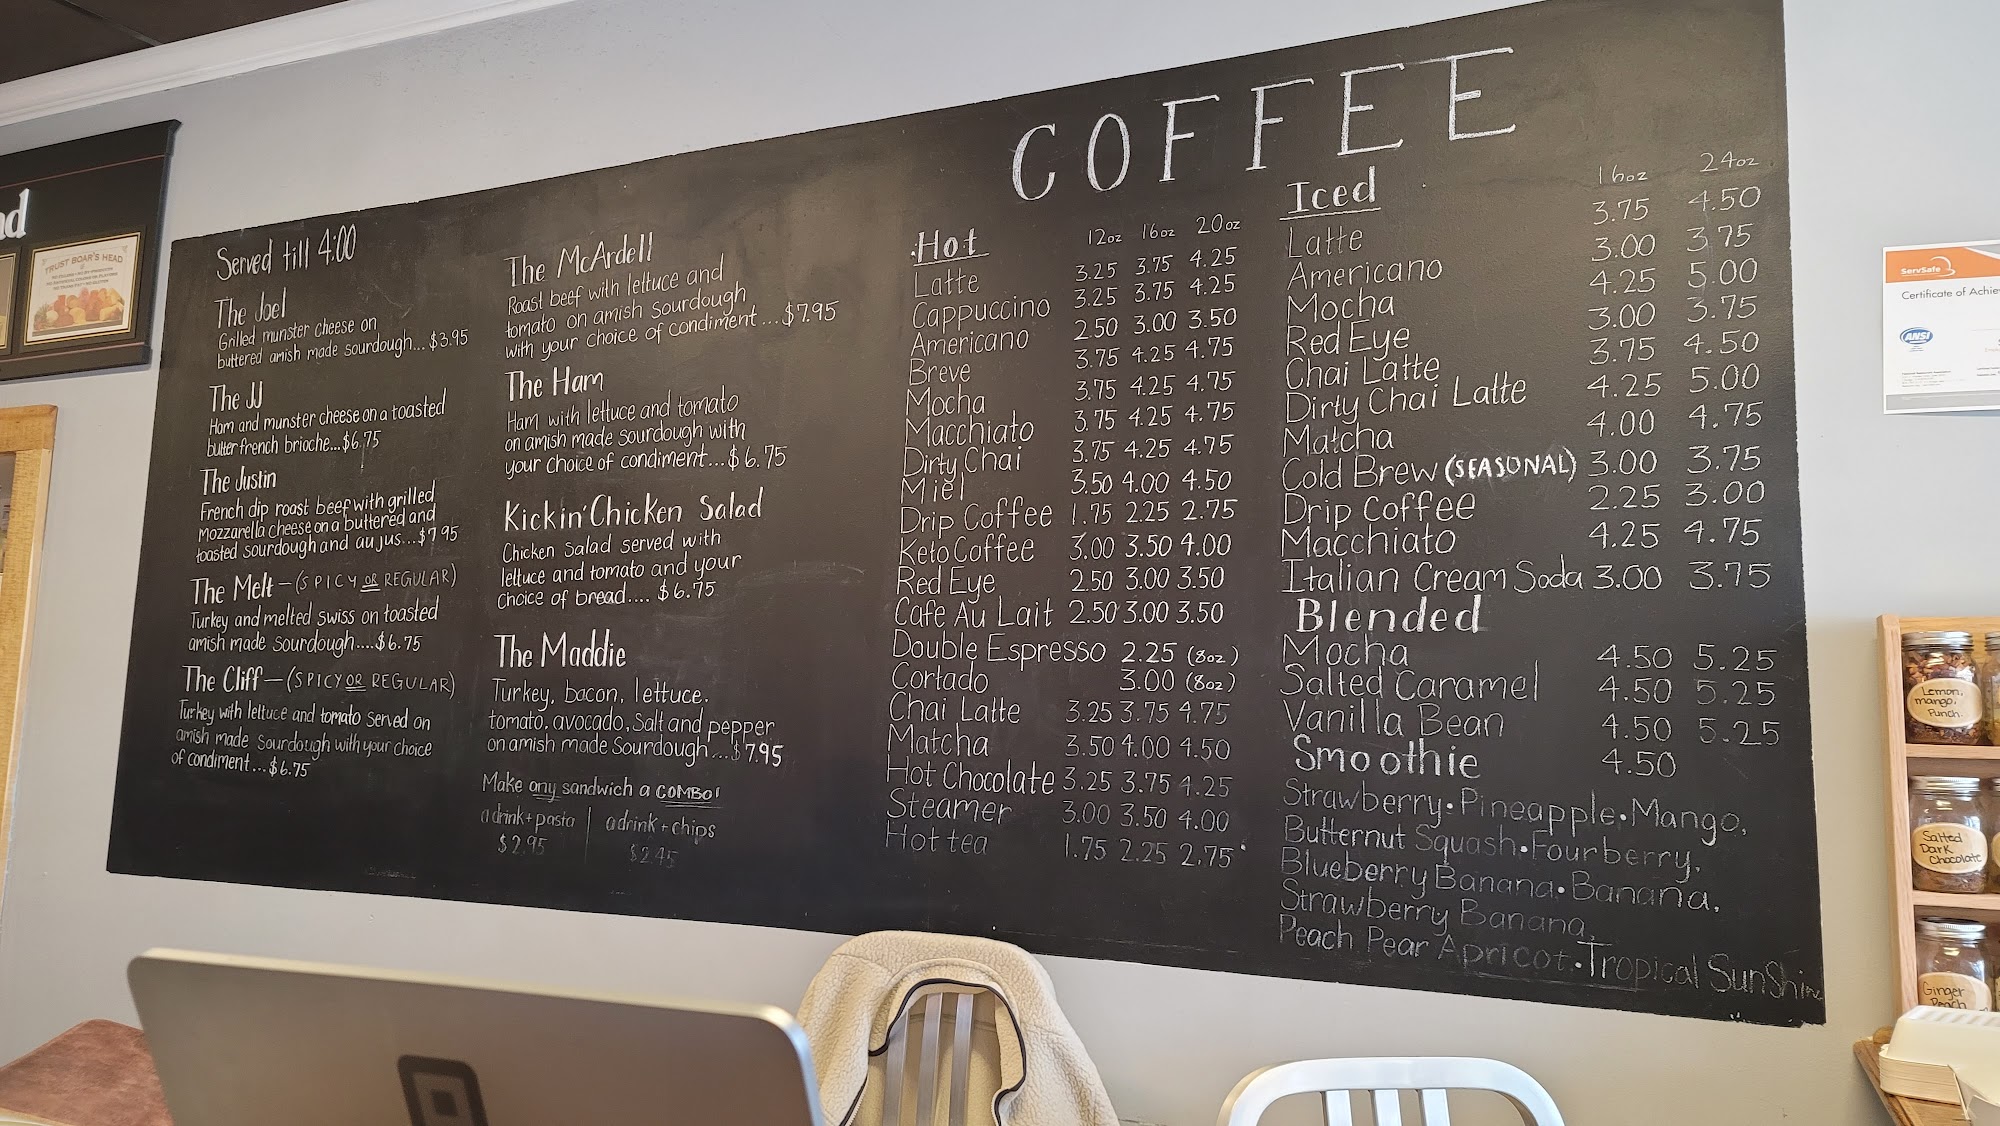 nd
TRUST BOAR'S HEAD
Served till 4:00
The Joel
Grilled munster cheese on
buttered amish made sourdough... $3.95
The JJ
Ham and munster cheese on a toasted
butter french brioche...$6.75
The Justin
French dip roast beef with grilled
mozzarella cheese on a buttered and
toasted sourdough and au jus...$7.95
The Melt - (SPICY OR REGULAR)
Turkey and melted swiss on toasted
amish made sourdough....$6.75
The Cliff - (SPICY OR REGULAR)
Turkey with lettuce and tomato served on
amish made sourdough with your choice
of condiment...$6.75
The McArdell
Roast beef with lettuce and
tomato on amish sourdough
with your choice of condiment...$7.95
The Ham
Ham with lettuce and tomato
on amish made sourdough with
your choice of condiment...$6.75
Kickin' Chicken Salad
Chicken salad served with
lettuce and tomato and your
choice of bread.... $6.75
The Maddie
Turkey, bacon, lettuce.
tomato, avocado, salt and pepper
on amish made sourdough...$7.95
Make any sandwich a COMBO!
a drink + pasta | a drink + chips
$2.95 $2.45
COFFEE
Hot 12oz 16oz 20oz
Latte 3.25 3.75 4.25
Cappuccino 3.25 3.75 4.25
Americano 2.50 3.00 3.50
Breve 3.75 4.25 4.75
Mocha 3.75 4.25 4.75
Macchiato 3.75 4.25 4.75
Dirty Chai 3.75 4.25 4.75
Miel 3.50 4.00 4.50
Drip Coffee 1.75 2.25 2.75
Keto Coffee 3.00 3.50 4.00
Red Eye 2.50 3.00 3.50
Cafe Au Lait 2.50 3.00 3.50
Double Espresso 2.25 (8oz)
Cortado 3.00 (8oz)
Chai Latte 3.25 3.75 4.75
Matcha 3.50 4.00 4.50
Hot Chocolate 3.25 3.75 4.25
Steamer 3.00 3.50 4.00
Hot tea 1.75 2.25 2.75
Iced 16oz 24oz
Latte 3.75 4.50
Americano 3.00 3.75
Mocha 4.25 5.00
Red Eye 3.00 3.75
Chai Latte 3.75 4.50
Dirty Chai Latte 4.25 5.00
Matcha 4.00 4.75
Cold Brew (SEASONAL) 3.00 3.75
Drip Coffee 2.25 3.00
Macchiato 4.25 4.75
Italian Cream Soda 3.00 3.75
Blended
Mocha 4.50 5.25
Salted Caramel 4.50 5.25
Vanilla Bean 4.50 5.25
Smoothie 4.50
Strawberry • Pineapple • Mango,
Butternut Squash • Fourberry,
Blueberry Banana • Banana,
Strawberry Banana,
Peach Pear Apricot • Tropical SunShine
ServSafe
Certificate of Achie
ANSI
Lemon,
mango,
Punch
Salted
Dark
Chocolate
Ginger
Peach